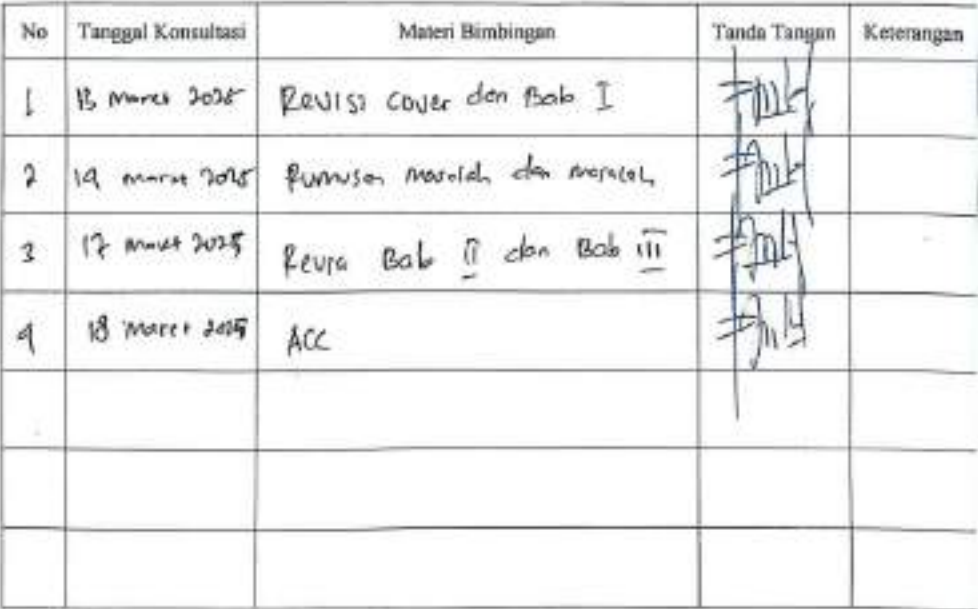 No Tanggal Konsultasi Materi Bimbingan Tanda Tangan Keterangan
1 13 Maret 2025 Revisi cover dan Bab I
2 14 maret 2025 Rumusan masalah dan
3 17 maret 2025 Revisi Bab II dan Bab III
4 18 Maret 2025 ACC